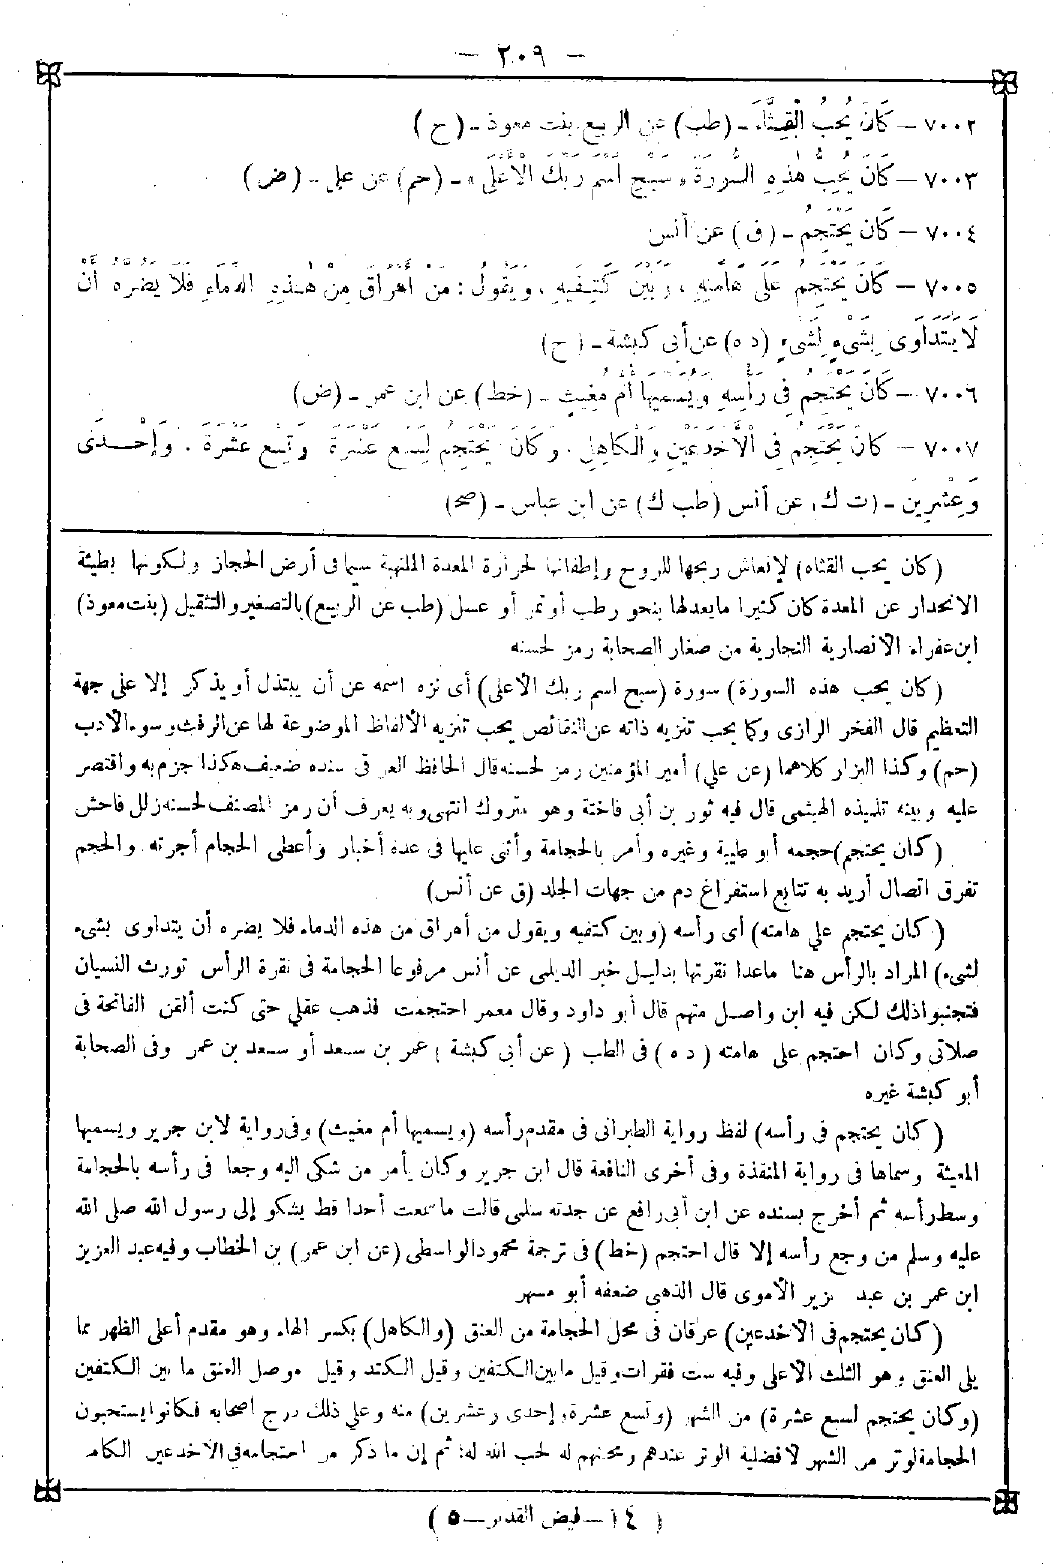 - ٢٠٩ -
٧٠٠٢ - كَانَ يُحِبُّ الْقِثَّاءَ - (طب) عن الربيع بنت معوذ - (ح)
٧٠٠٣ - كَانَ يُحِبُّ هٰذِهِ السُّورَةَ «سَبِّحِ اسْمَ رَبِّكَ الْأَعْلَى» - (حم) عن على - (ض)
٧٠٠٤ - كَانَ يَحْتَجِمُ - (ق) عن أنس
٧٠٠٥ - كَانَ يَحْتَجِمُ عَلَى هَامَتِهِ، وَبَيْنَ كَتِفَيْهِ، وَيَقُولُ: مَنْ أَهْرَاقَ مِنْ هٰذِهِ الدِّمَاءِ فَلَا يَضُرُّهُ أَنْ
لَا يَتَدَاوَى بِشَيْءٍ لِشَيْءٍ (د ه) عن أبى كبشة - (ح)
٧٠٠٦ - كَانَ يَحْتَجِمُ فِى رَأْسِهِ وَيُسَمِّيهَا أُمَّ مُغِيثٍ - (خط) عن ابن عمر - (ض)
٧٠٠٧ - كَانَ يَحْتَجِمُ فِى الْأَخْدَعَيْنِ وَالْكَاهِلِ، وَكَانَ يَحْتَجِمُ لِسَبْعَ عَشْرَةَ وَتِسْعَ عَشْرَةَ، وَإِحْدَى
وَعِشْرِينَ - (ت ك) عن أنس (طب ك) عن ابن عباس - (صح)
(كان يحب القثاء) لإنعاش ريحها للروح وإطفائها لحرارة المعدة الملتهبة سيما فى أرض الحجاز ولكونها بطيئة
الانحدار عن المعدة كان كثيرا ما يعدلها بنحو رطب أو تمر أو عسل (طب عن الربيع) بالتصغير والتثقيل (بنت معوذ)
ابن عفراء الأنصارية النجارية من صغار الصحابة رمز لحسنه
(كان يحب هذه السورة) سورة (سبح اسم ربك الأعلى) أى نزه اسمه عن أن يبتذل أو يذكر إلا على جهة
التعظيم قال الفخر الرازى وكما يجب تنزيه ذاته عن النقائص يجب تنزيه الألفاظ الموضوعة لها عن الرفث وسوء الأدب
(حم) وكذا البزار كلاهما (عن على) أمير المؤمنين رمز لحسنه قال الحافظ العراقى سنده ضعيف هكذا جزم به واقتصر
عليه وبينه تلميذه الهيثمى قال فيه ثور بن أبى فاختة وهو متروك انتهى وبه يعرف أن رمز المصنف لحسنه زلل فاحش
(كان يحتجم) حجمه أبو طيبة وغيره وأمر بالحجامة وأثنى عليها فى عدة أخبار وأعطى الحجام أجرته والحجم
تفرق اتصال أريد به تتابع استفراغ دم من جهات الجلد (ق عن أنس)
(كان يحتجم على هامته) أى رأسه (وبين كتفيه ويقول من أهراق من هذه الدماء فلا يضره أن يتداوى بشىء
لشىء) المراد بالرأس هنا ماعدا نقرتها بدليل خبر الديلمى عن أنس مرفوعا الحجامة فى نقرة الرأس تورث النسيان
فتجنبوا ذلك لكن فيه ابن واصل متهم قال أبو داود وقال معمر احتجمت فذهب عقلى حتى كنت ألقن الفاتحة فى
صلاتى وكان احتجم على هامته (د ه) فى الطب (عن أبى كبشة) عمر بن سعد أو سعد بن عمر وفى الصحابة
أبو كبشة غيره
(كان يحتجم فى رأسه) لفظ رواية الطبرانى فى مقدم رأسه (ويسميها أم مغيث) وفى رواية لابن جرير ويسميها
المغيثة وسماها فى رواية المنقذة وفى أخرى النافعة قال ابن جرير وكان يأمر من شكى اليه وجعا فى رأسه بالحجامة
وسط رأسه ثم أخرج بسنده عن ابن أبى رافع عن جدته سلمى قالت ما سمعت أحدا قط يشكو إلى رسول الله صلى الله
عليه وسلم من وجع رأسه إلا قال احتجم (خط) فى ترجمة محمود الواسطى (عن ابن عمر) بن الخطاب وفيه عبد العزيز
ابن عمر بن عبد العزيز الأموى قال الذهبى ضعفه أبو مسهر
(كان يحتجم فى الأخدعين) عرقان فى محل الحجامة من العنق (والكاهل) بكسر الهاء وهو مقدم أعلى الظهر مما
يلى العنق وهو الثلث الأعلى وفيه ست فقرات وقيل ما بين الكتفين وقيل الكتد وقيل موصل العنق ما بين الكتفين
(وكان يحتجم لسبع عشرة) من الشهر (وتسع عشرة، إحدى وعشرين) منه وعلى ذلك درج أصحابه فكانوا يستحبون
الحجامة لوتر من الشهر لأفضلية الوتر عندهم ومحبتهم له لحب الله له؛ ثم إن ما ذكر من احتجامه فى الأخدعين الكاهل
(١٤ - فيض القدير - ٥)